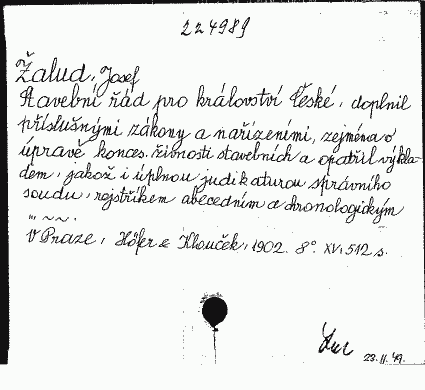 224989
Žalud, Josef
Stavební řád pro království České, doplnil
příslušnými zákony a nařízeními, zejména o
úpravě konces. živností stavebních a opatřil výkla-
dem, jakož i úplnou judikaturou správního
soudu, rejstříkem abecedním a chronologickým
... ~~.
V Praze, Höfer & Klouček, 1902. 8°. XV, 512 s.
23.11.49.